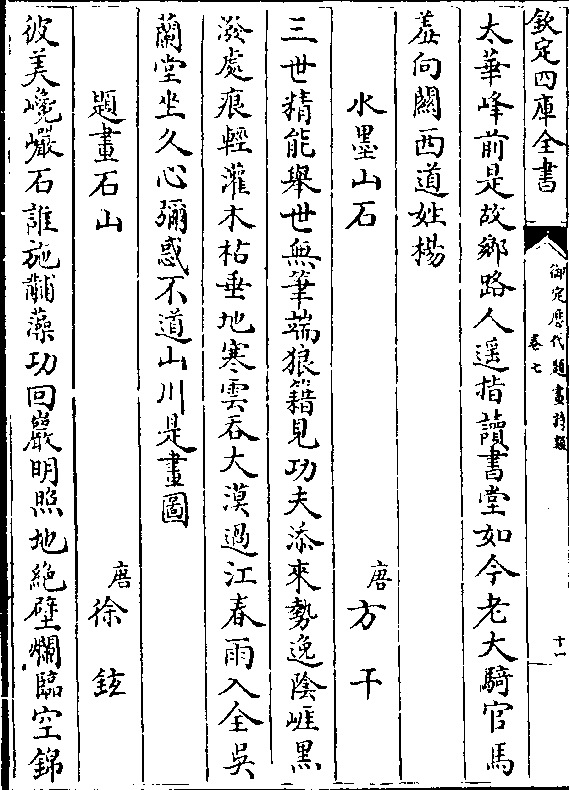 欽定四庫全書
御定歷代題畫詩類
卷七
十一
太華峰前是故鄉路人遥指讀書堂如今老大騎官馬
羞向關西道姓楊
水墨山石
唐 方干
三世精能舉世無筆端狼籍見功夫添來勢逸陰崖黒
潑處痕輕灌木枯垂地寒雲吞大漠過江春雨入全吳
蘭堂坐久心彌惑不道山川是畫圖
題畫石山
唐 徐鉉
彼美巉巖石誰施黼藻功回巖明照地絶壁爛臨空錦